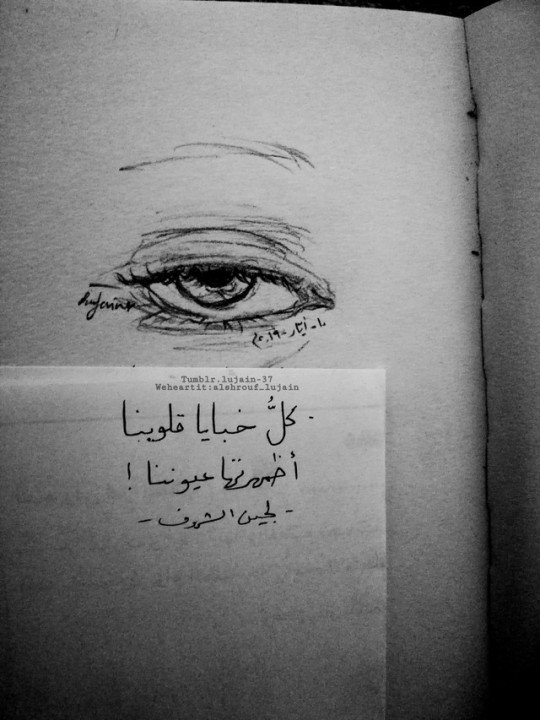 Lujain
١٠ - أيار - ٢٠١٩م
Tumblr.lujain-37
Weheartit:alshrouf_lujain
كلُّ خبايا قلوبنا .
أظهرتها عيوننا !
- لجين الشروف -